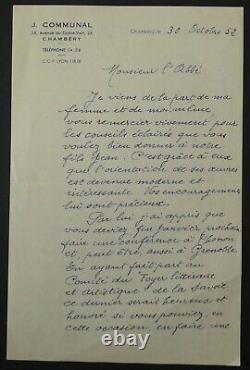 J. COMMUNAL
CHAMBÉRY
TÉLÉPHONE
C.C.P. LYON
CHAMBÉRY, le 30 Octobre 52
Monsieur l'Abbé
Je viens de la part de ma
femme et de moi-même
vous remercier vivement pour
les conseils éclairés que vous
voulez bien donner à notre
fils Jean. C'est grâce à eux
que l'orientation de ses œuvres
est devenue moderne et
intéressante. Vos encouragements
lui sont précieux.
Par lui j'ai appris que
vous devriez fin janvier prochain
faire une conférence à Thonon
et, peut être, aussi à Grenoble.
En ayant fait part au
Comité du Foyer littéraire
et artistique de la Savoie
ce dernier serait heureux et
honoré si vous pouviez, en
cette occasion, en faire une